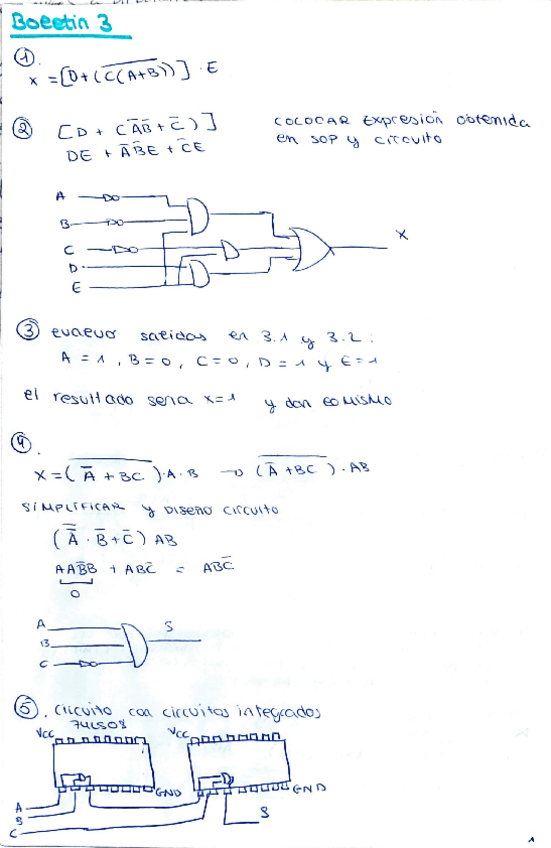 Boletín 3
①.
x = [D + (\overline{C(A+B)})] · E
② [D + (C\overline{A}\overline{B} + \overline{C})]
COLOCAR Expresión obtenida
en SOP y circuito
DE + \overline{A}\overline{B}E + \overline{C}E
A
B
C
D
E
X
③ evaluo salidas en 3.1 y 3.2:
A = 1, B = 0, C = 0, D = 1 y E = 1
el resultado seria x=1 y dan lo mismo
④.
x = \overline{(\overline{A} + BC)}·A·B → \overline{(\overline{A} + BC)}·AB
SIMPLIFICAR y DISEÑO CIRCUITO
(\overline{\overline{A}} · \overline{B} + \overline{C}) AB
AA\overline{B}B + AB\overline{C} = AB\overline{C}
0
A
B
C
S
⑤. circuito con circuitos integrados
74LS08
Vcc
Vcc
GND
GND
A
B
C
S
1